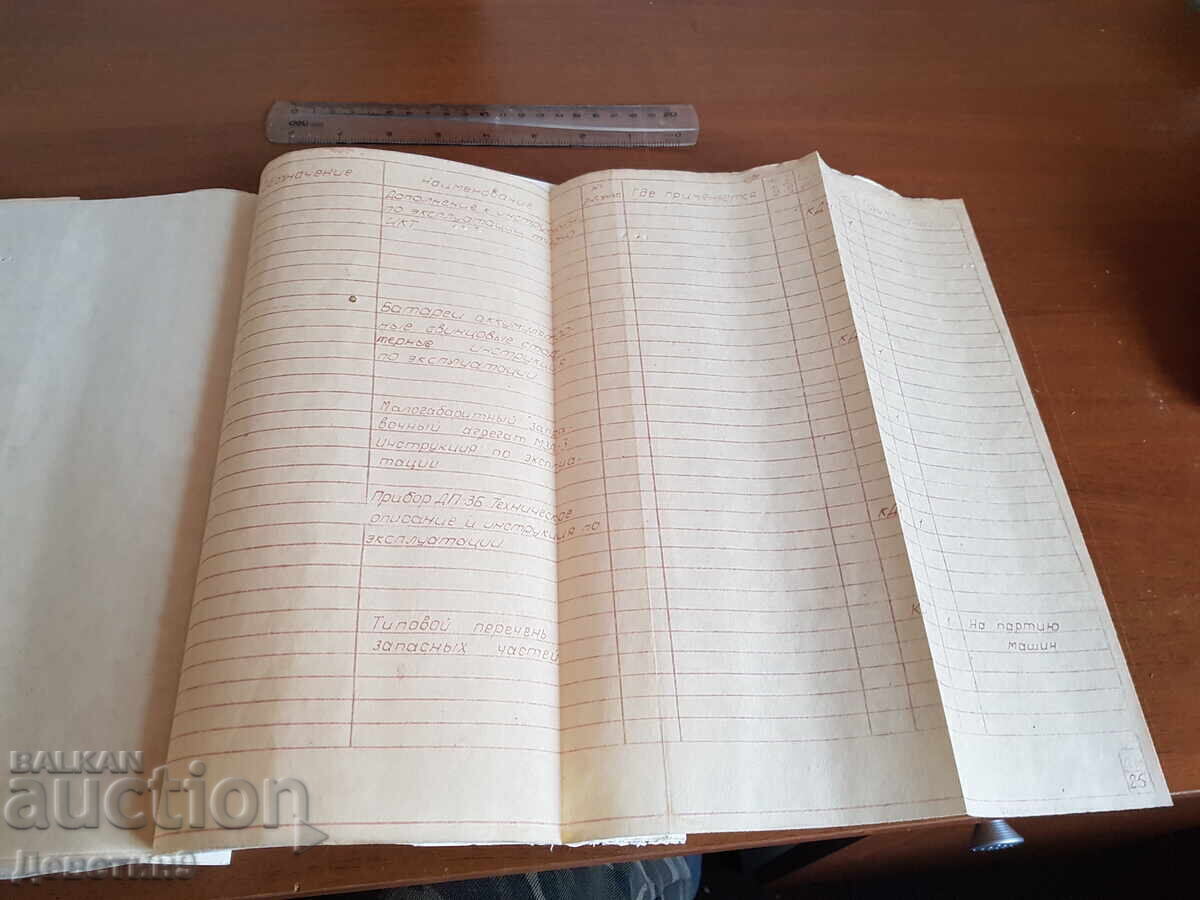 означение
Наименование
Где применяется
Дополнение к инструкции
по эксплуатации
КД
Батареи аккумулятор-
ные свинцовые стар-
терные инструкция
по эксплуатации
КД
1
Малогабаритный запра-
вочный агрегат
инструкция по эксплуа-
тации
Прибор ДП-3Б. Техническое
описание и инструкция по
эксплуатации
КД
1
Типовой перечень
запасных частей
1
На партию
машин
25
BALKAN
auction
Девети89